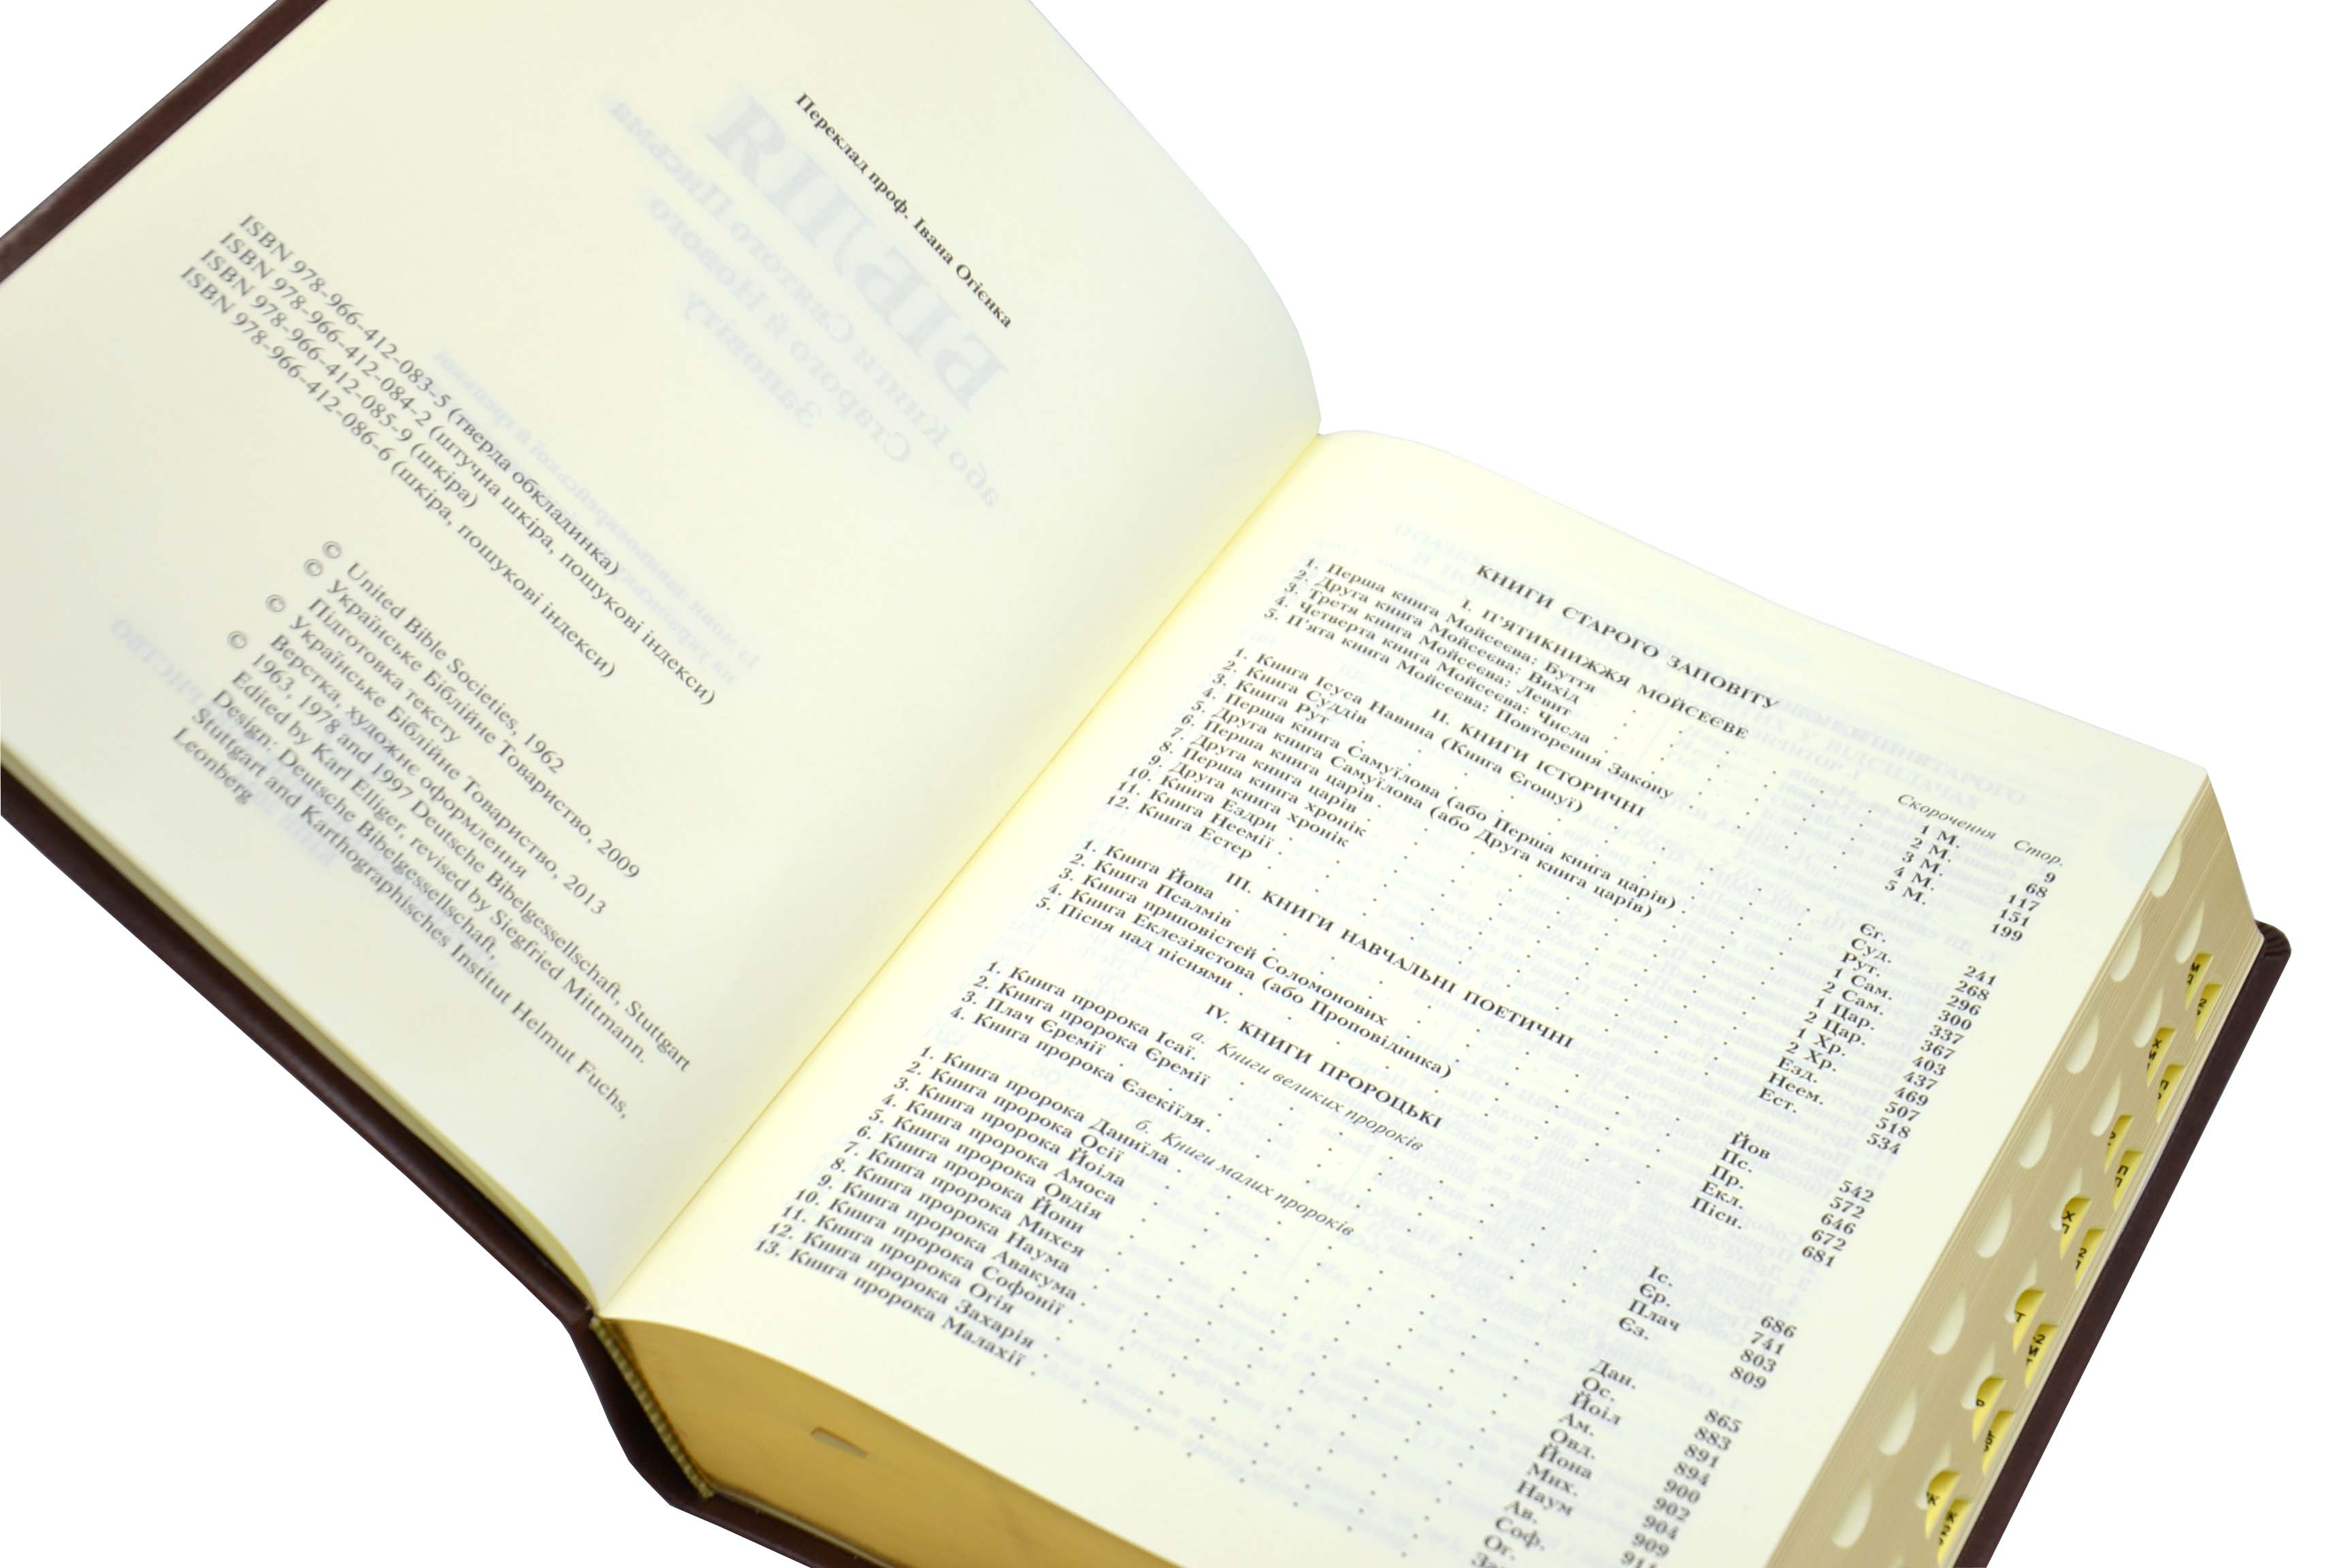 Переклад проф. Івана Огієнка
ISBN 978-966-412-083-5 (тверда обкладинка)
ISBN 978-966-412-084-2 (штучна шкіра, пошукові індекси)
ISBN 978-966-412-085-9 (шкіра)
ISBN 978-966-412-086-6 (шкіра, пошукові індекси)
© United Bible Societies, 1962
© Українське Біблійне Товариство, 2009
Підготовка тексту
© Українське Біблійне Товариство, 2013
Верстка, художнє оформлення
© 1963, 1978 and 1997 Deutsche Bibelgessellschaft, Stuttgart
Edited by Karl Elliger, revised by Siegfried Mittmann.
Design: Deutsche Bibelgessellschaft,
Stuttgart and Karthographisches Institut Helmut Fuchs,
Leonberg
КНИГИ СТАРОГО ЗАПОВІТУ
Скорочення Стор.
І. П'ЯТИКНИЖЖЯ МОЙСЕЄВЕ
1. Перша книга Мойсеєва: Буття 1 М. 9
2. Друга книга Мойсеєва: Вихід 2 М. 68
3. Третя книга Мойсеєва: Левит 3 М. 117
4. Четверта книга Мойсеєва: Числа 4 М. 151
5. П'ята книга Мойсеєва: Повторення Закону 5 М. 199
ІІ. КНИГИ ІСТОРИЧНІ
1. Книга Ісуса Навина (Книга Єгошуї) Єг. 241
2. Книга Суддів Суд. 268
3. Книга Рут Рут. 296
4. Перша книга Самуїлова (або Перша книга царів) 1 Сам. 300
5. Друга книга Самуїлова (або Друга книга царів) 2 Сам. 337
6. Перша книга царів 1 Цар. 367
7. Друга книга царів 2 Цар. 403
8. Перша книга хронік 1 Хр. 437
9. Друга книга хронік 2 Хр. 469
10. Книга Ездри Езд. 507
11. Книга Неемії Неем. 518
12. Книга Естер Ест. 534
ІІІ. КНИГИ НАВЧАЛЬНІ ПОЕТИЧНІ
1. Книга Йова Йов 542
2. Книга Псалмів Пс. 572
3. Книга приповістей Соломонових Пр. 646
4. Книга Еклезіястова (або Проповідника) Екл. 672
5. Пісня над піснями Пісн. 681
IV. КНИГИ ПРОРОЦЬКІ
а. Книги великих пророків
1. Книга пророка Ісаї Іс. 686
2. Книга пророка Єремії Єр. 741
3. Плач Єремії Плач 803
4. Книга пророка Єзекіїля Єз. 809
б. Книги малих пророків
1. Книга пророка Даниїла Дан. 865
2. Книга пророка Осії Ос. 883
3. Книга пророка Йоіла Йоіл 891
4. Книга пророка Амоса Ам. 894
5. Книга пророка Овдія Овд. 900
6. Книга пророка Йони Йона 902
7. Книга пророка Михея Мих. 904
8. Книга пророка Наума Наум 909
9. Книга пророка Авакума Ав.
10. Книга пророка Софонії Соф.
11. Книга пророка Огія Ог.
12. Книга пророка Захарія
13. Книга пророка Малахії